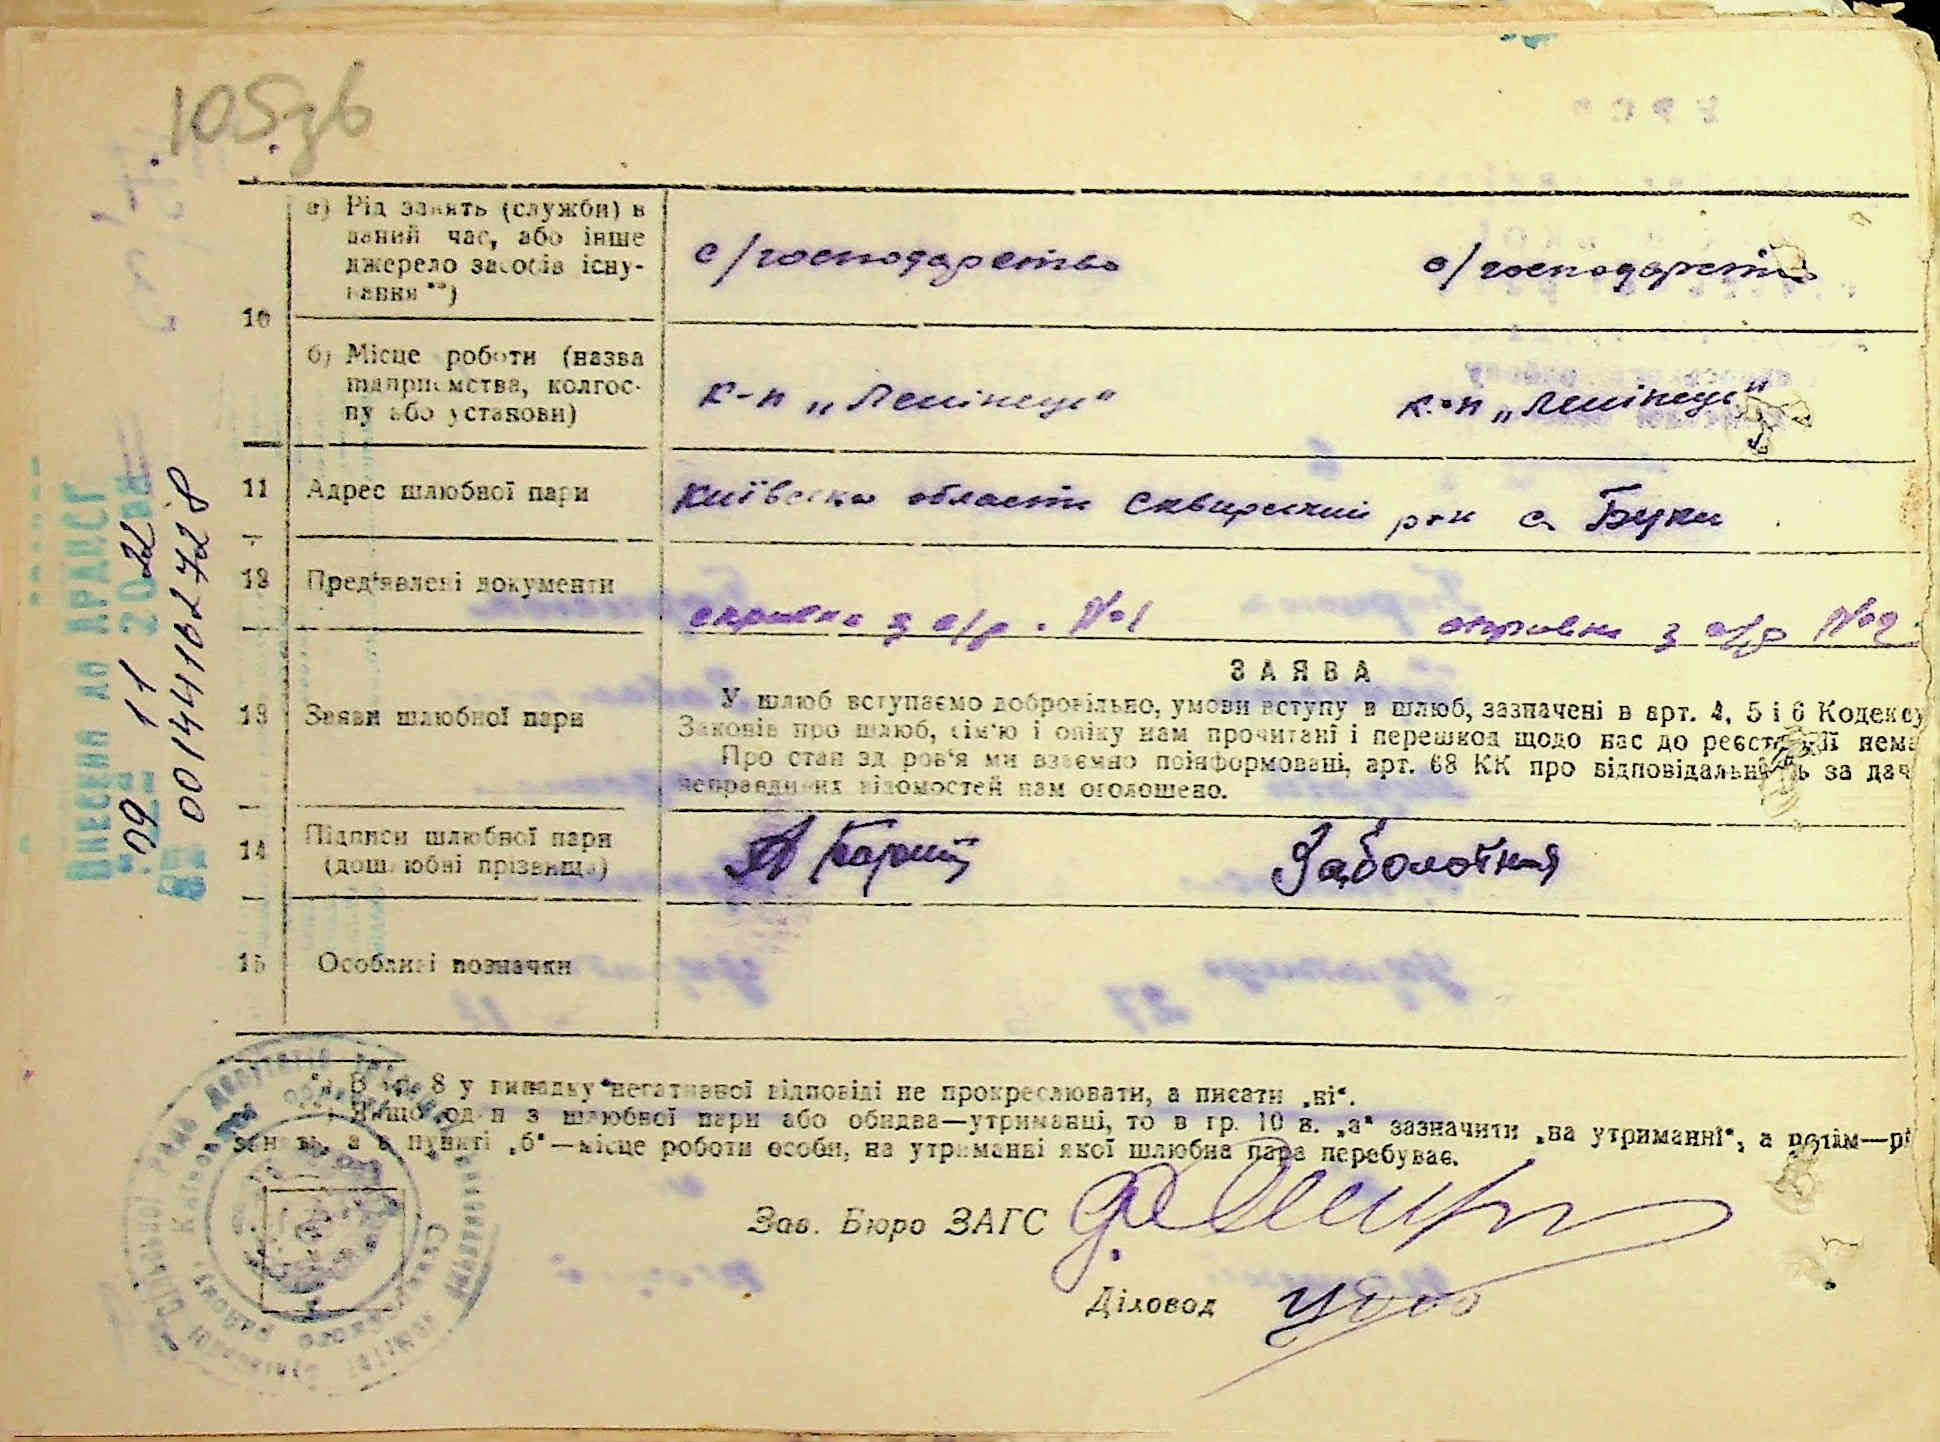 105зв
а) Рід занять (служби) в
даний час, або інше
джерело засобів існу-
вання **)
с/господарство
с/господарство
10
б) Місце роботи (назва
підприємства, колгос-
пу або установи)
к-п „Ленінець"
к-п „Ленінець"
11
Адрес шлюбної пари
Київська область Сквирський р-н с. Буки
12
Пред'явлені документи
справка з с/р. №1
справка з с/р №2
13
Заяви шлюбної пари
ЗАЯВА
У шлюб вступаємо добровільно, умови вступу в шлюб, зазначені в арт. 4, 5 і 6 Кодексу
Законів про шлюб, сім'ю і опіку нам прочитані і перешкод щодо нас до реєстрації нема
Про стан здоров'я ми взаємно поінформовані, арт. 68 КК про відповідальність за дач
неправдивих відомостей нам оголошено.
14
Підписи шлюбної пари
(дошлюбні прізвища)
Заболотная
15
Особливі позначки
*) В гр. 8 у випадку негативної відповіді не прокреслювати, а писати „ні“.
Якщо один з шлюбної пари або обидва—утриманці, то в гр. 10 п. „а“ зазначити „на утриманні“, а потім—рі
занять, а в пункті „б“—місце роботи особи, на утриманні якої шлюбна пара перебуває.
Зав. Бюро ЗАГС
Діловод
Внесено до ДРАЦСГ
09 11 2022
00144182728